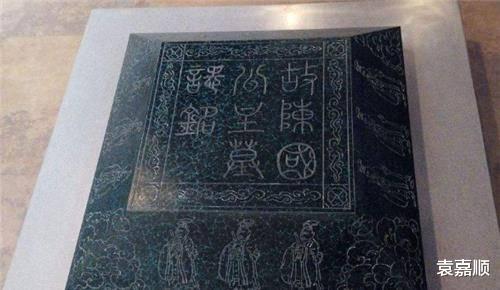 故陳國
公主墓
誌銘
袁嘉顺